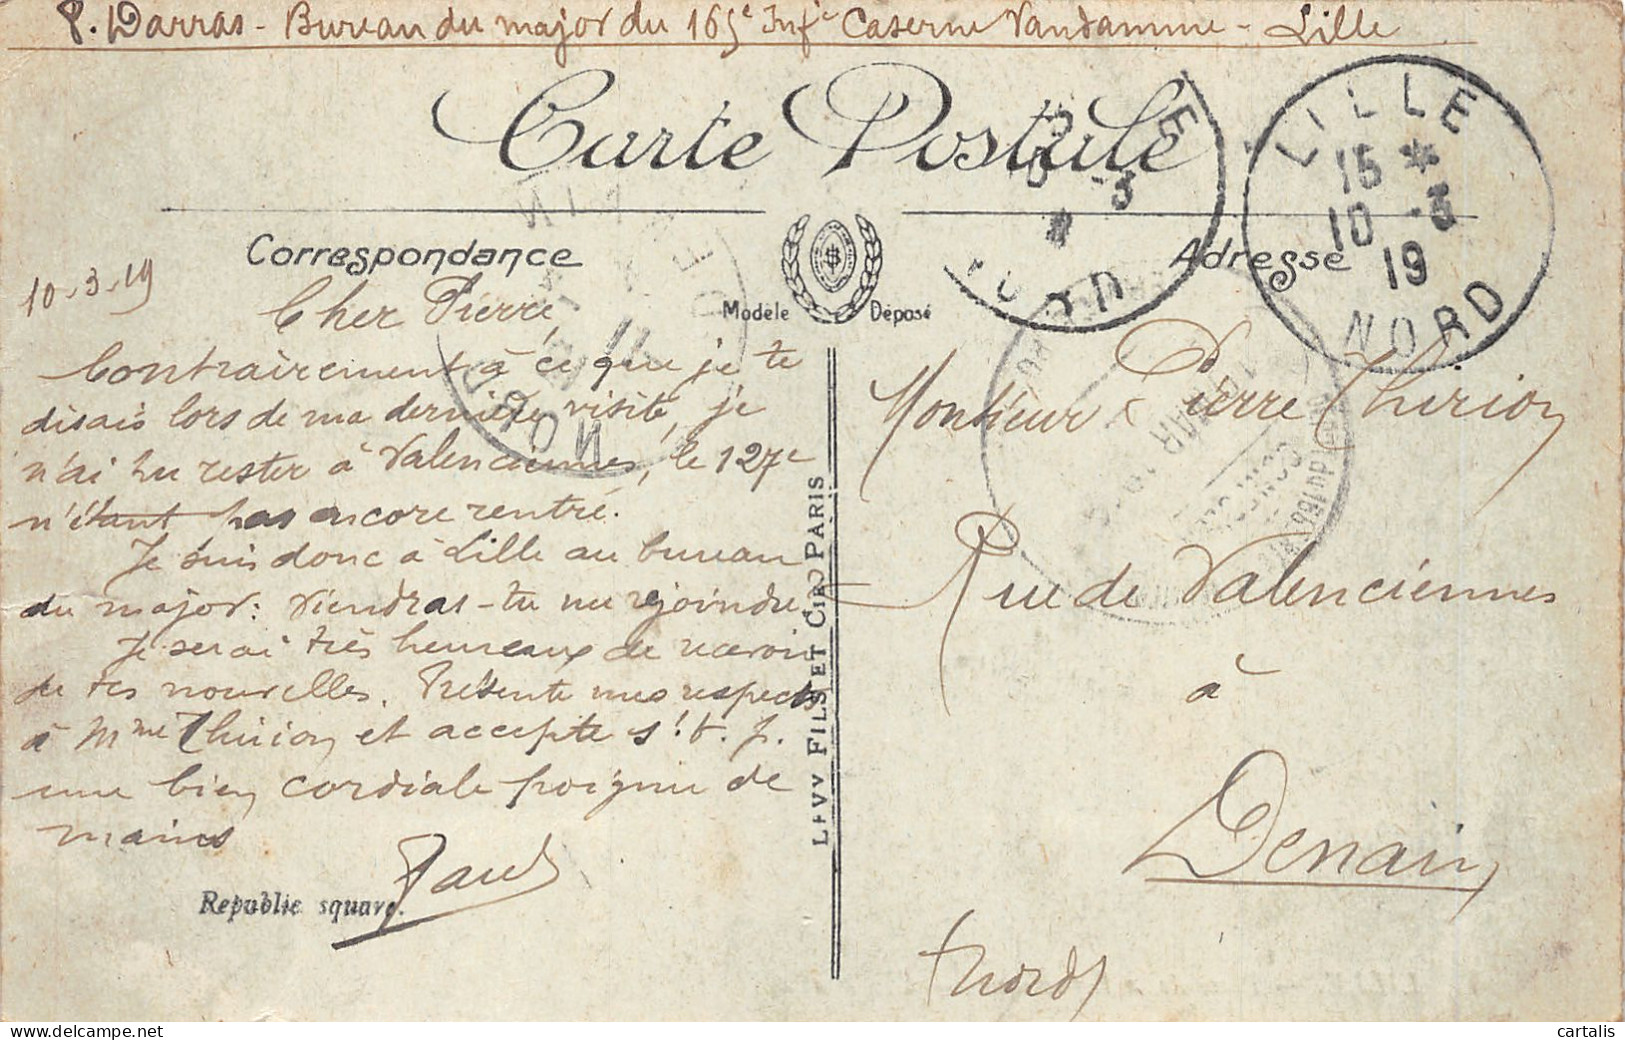 P. Darras - Bureau du major du 165e Infie Caserne Vandamme - Lille
Carte Postale
Correspondance
Adresse
Modèle Déposé
LILLE
15 *
10 -3
19
NORD
10-3-19
Cher Pierre,
Contrairement à ce que je te
disais lors de ma dernière visite, je
n'ai pu rester à Valenciennes, le 127e
n'étant pas encore rentré.
Je suis donc à Lille au bureau
du major: viendras-tu me rejoindre.
Je serai très heureux de recevoir
de tes nouvelles. Présente mes respects
à Mme Thirion et accepte s.t.f.
une bien cordiale poignée de
mains
Paul
Republic square.
LEVY FILS ET CIE PARIS
Monsieur Pierre Thirion
Rue de Valenciennes
à
Denain
(Nord)
cartalis